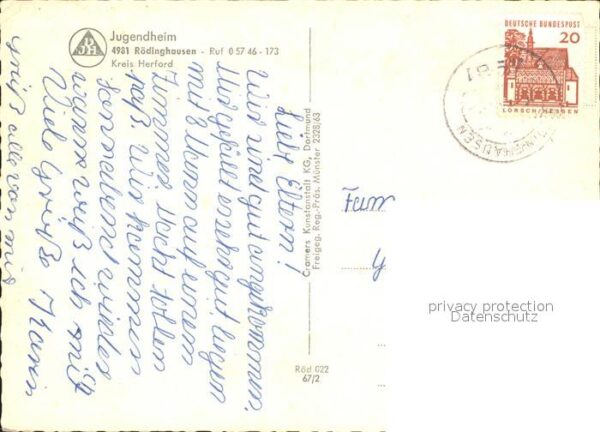 Jugendheim
4981 Rödinghausen - Ruf 0 57 46 - 173
Kreis Herford
DEUTSCHE BUNDESPOST
20
LORSCH/HESSEN
Liebe Eltern!
Wir sind gut angekommen.
Mir gefällt es sehr gut. Liegen
mit 8 Mann auf einem
Zimmer. Macht tollen
Spaß. Wir kommen
Sonnabend wieder
wann weiß ich nicht
Viele Grüße Karin
grüß alle von mir
Cramers Kunstanstalt KG, Dortmund
Freigeg. Reg.-Präs. Münster 2328/63
Fam
Röd 022
67/2
privacy protection
Datenschutz